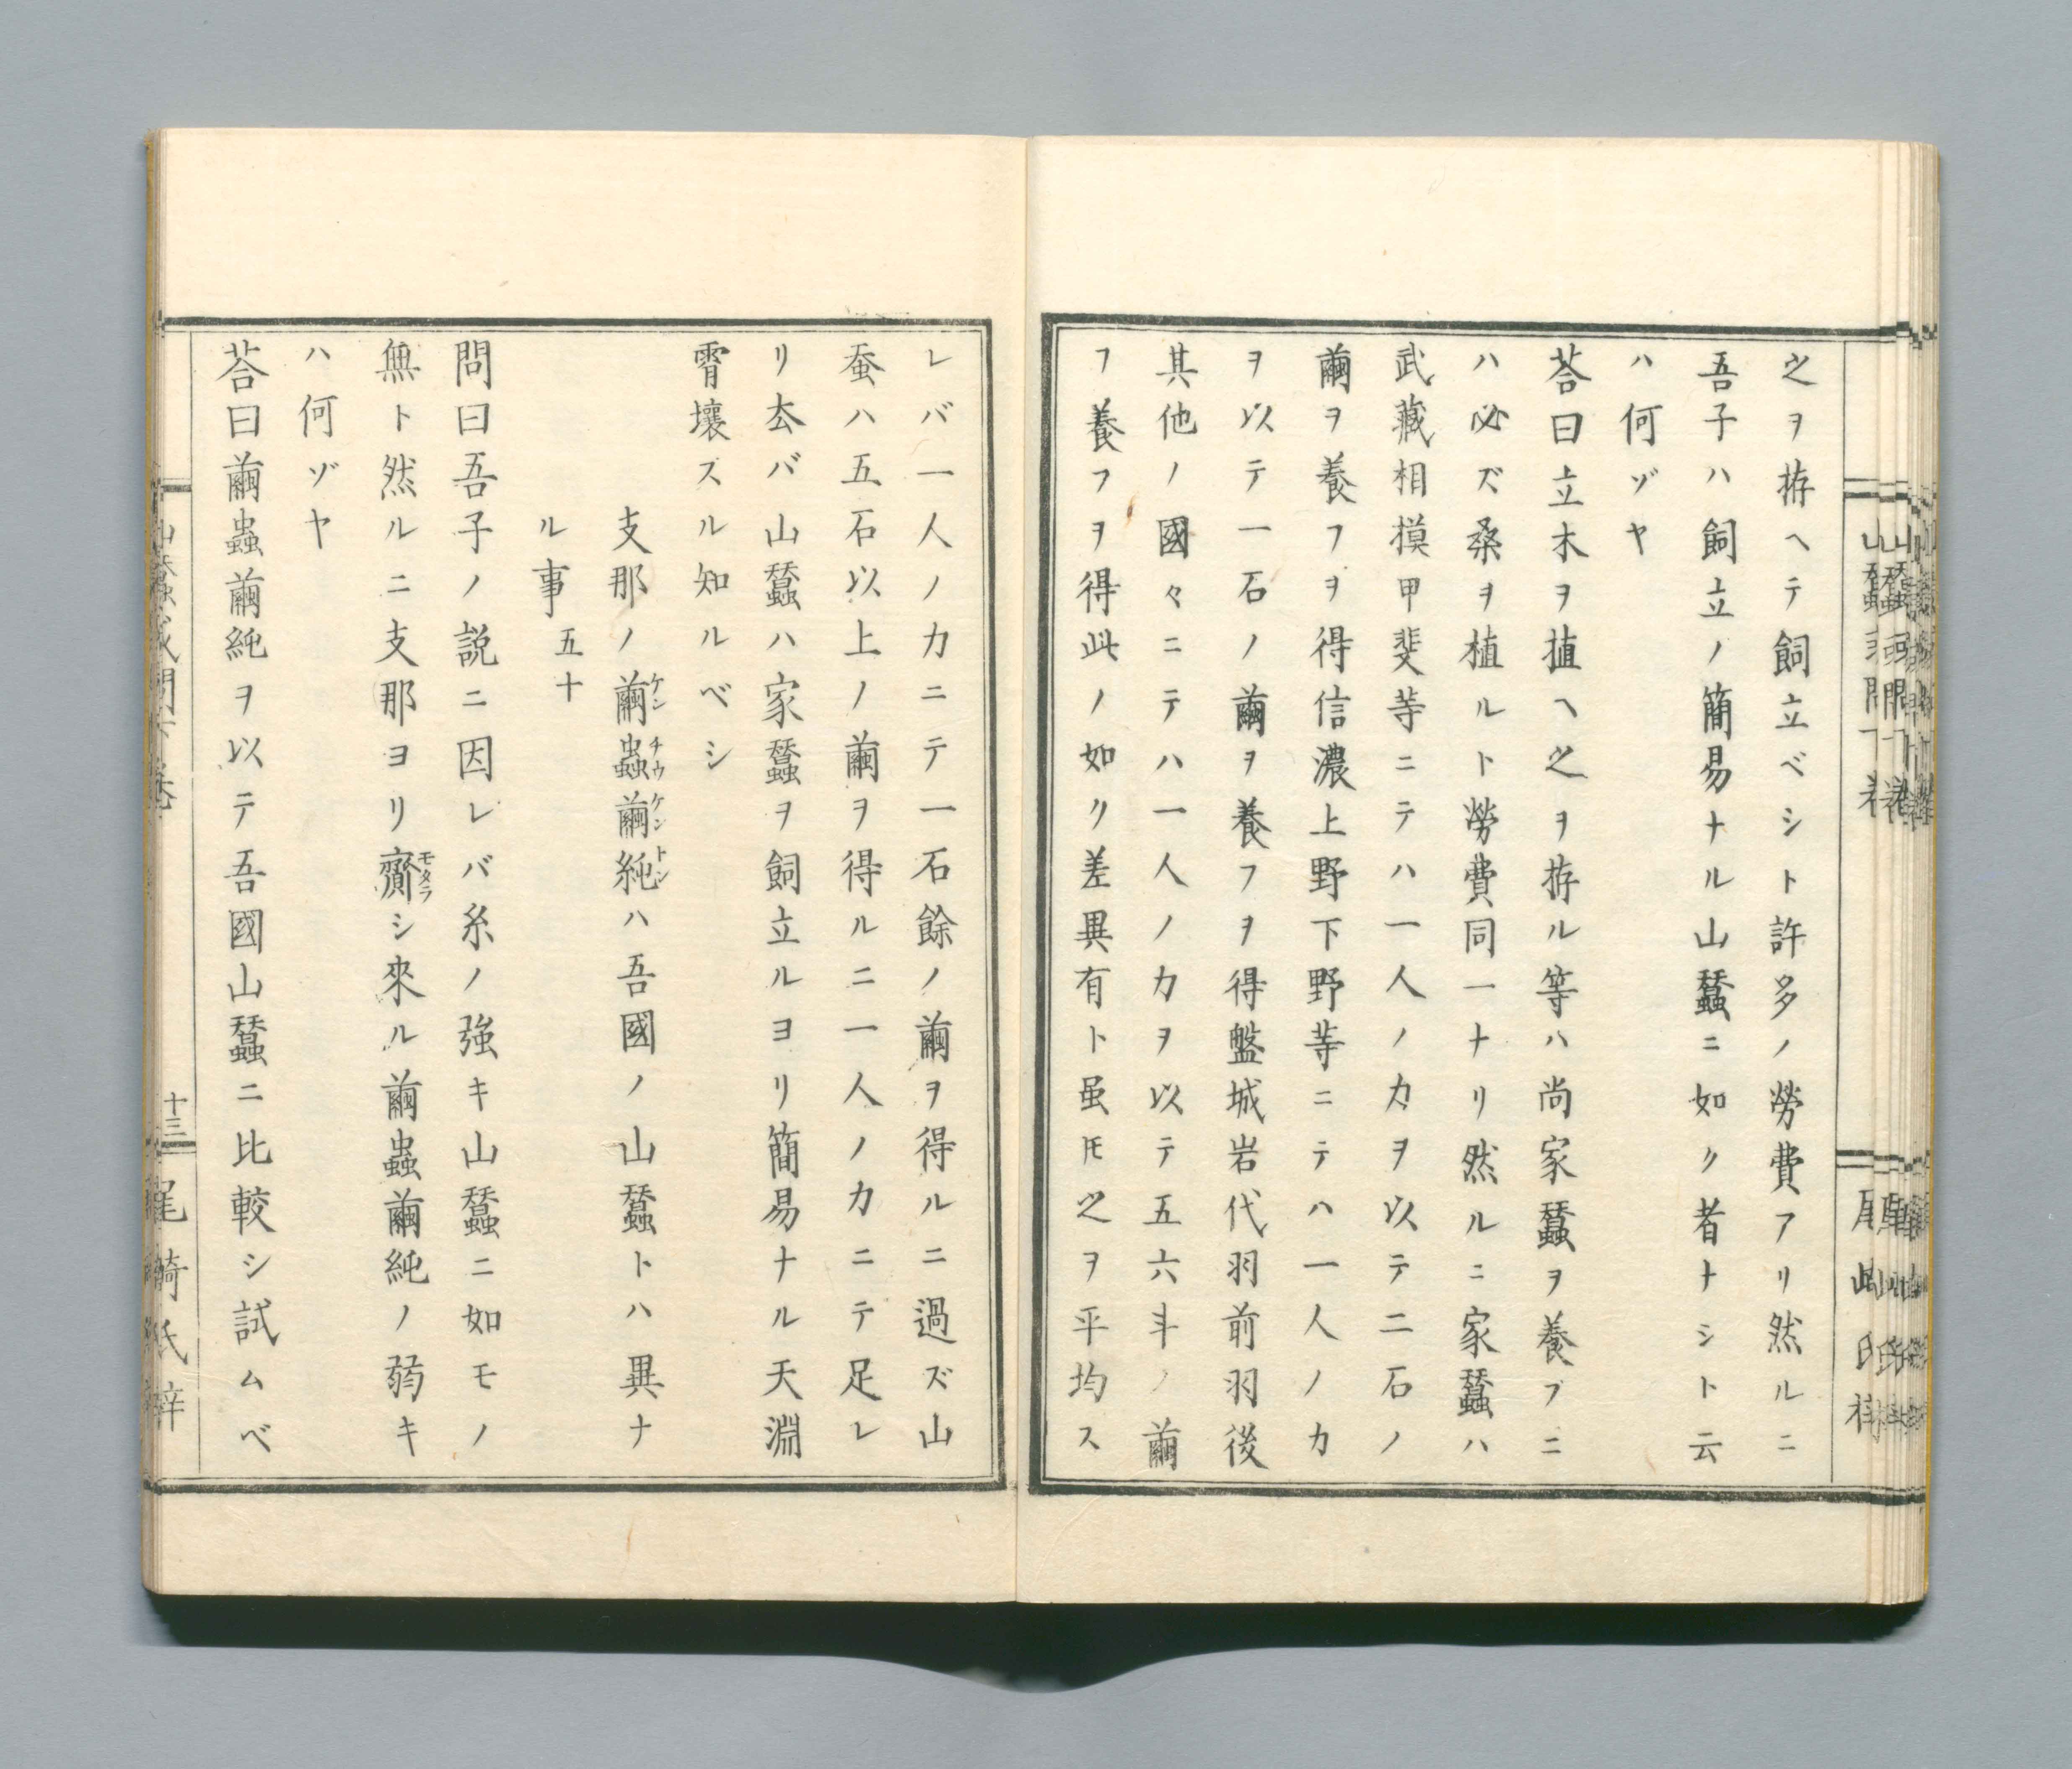 之ヲ拵ヘテ飼立ベシト許多ノ勞費アリ然ルニ
吾子ハ飼立ノ簡易ナル山蠶ニ如ク者ナシト云
ハ何ゾヤ
荅曰立木ヲ植ヘ之ヲ拵ル等ハ尚家蠶ヲ養フニ
ハ必ズ桑ヲ植ルト勞費同一ナリ然ルニ家蠶ハ
武藏相摸甲斐等ニテハ一人ノ力ヲ以テ二石ノ
繭ヲ養フヲ得信濃上野下野等ニテハ一人ノ力
ヲ以テ一石ノ繭ヲ養フヲ得盤城岩代羽前羽後
其他ノ國々ニテハ一人ノ力ヲ以テ五六斗ノ繭
フ養フヲ得此ノ如ク差異有ト虽𪜈之ヲ平均ス
レバ一人ノ力ニテ一石餘ノ繭ヲ得ルニ過ズ山
蚕ハ五石以上ノ繭ヲ得ルニ一人ノ力ニテ足レ
リ厺バ山蠶ハ家蠶ヲ飼立ルヨリ簡易ナル天淵
霄壤スル知ルベシ
支那ノ繭蟲繭純ハ吾國ノ山蠶トハ異ナ
ケンチウケントン
ル事 五十
問曰吾子ノ説ニ因レバ糸ノ強キ山蠶ニ如モノ
無ト然ルニ支那ヨリ齎シ來ル繭蟲繭純ノ弱キ
モタラ
ハ何ゾヤ
荅曰繭蟲繭純ヲ以テ吾國山蠶ニ比較シ試ムベ
十三